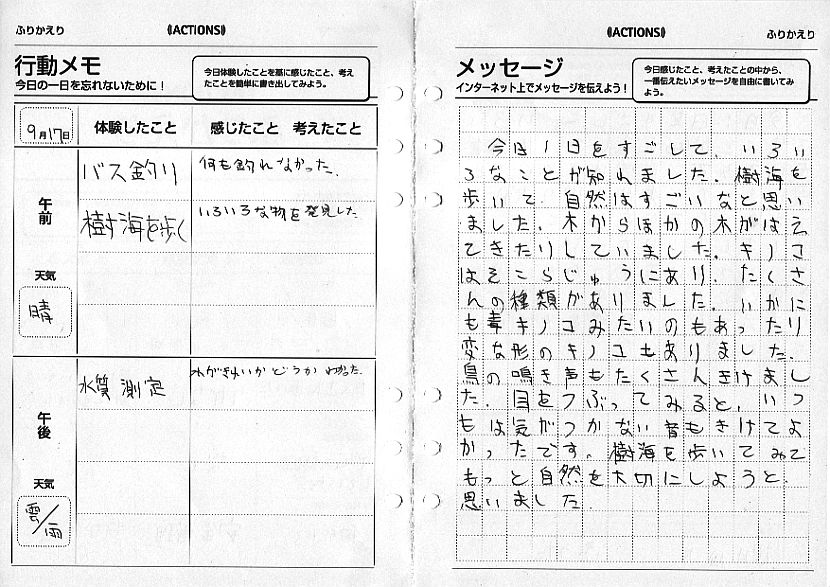 ふりかえり
《ACTIONS》
行動メモ
今日の一日を忘れないために！
今日体験したことを基に感じたこと、考え
たことを簡単に書き出してみよう。
9月17日
体験したこと
感じたこと 考えたこと
午前
バス釣り
何も釣れなかった.
樹海を歩く
いろいろな物を発見した
天気
晴
午後
水質測定
水がきれいかどうかわかった.
天気
雲/雨
《ACTIONS》
ふりかえり
メッセージ
インターネット上でメッセージを伝えよう！
今日感じたこと、考えたことの中から、
一番伝えたいメッセージを自由に書いてみ
よう。
今日1日をすごして、いろい
ろなことが知れました.樹海を
歩いて自然はすごいなと思い
ました.木からほかの木がはえ
てきたりしていました.キノコ
はそこらじゅうにあり.たくさ
んの種類がありました.いかに
も毒キノコみたいのもあったり
変な形のキノコもありました.
鳥の鳴き声もたくさんきけまし
た.目をつぶってみると,いつ
もは気がつかない音もきけてよ
かったです。樹海を歩いてみて
もっと自然を大切にしようと.
思いました.